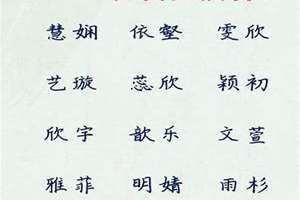 慧娴 依壑 雯欣
艺璇 蕊欣 颖初
欣宇 歆乐 文萱
雅菲 明婧 雨杉